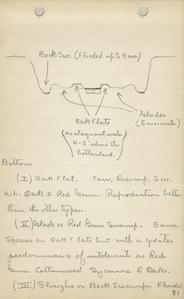 Back Sw. (Flooded up to 9 mo.)
Oak Flats
(no stagnant water)
4-5' above the
bottomland.
Glades
(5 mo. water)
Bottom
(I) Oak Flat. Cow, Overcup, Sw.
Wh. Oak & Red Gum. Reproduction better
than the other types.
(II) Glade or Red Gum Swamp. Same
Species as Oak flats but with a greater
predominance of intolerant as Red
Gum Cottonwood Sycamore & Oaks.
(III) Sloughs or Back Swamps. Flooded
81